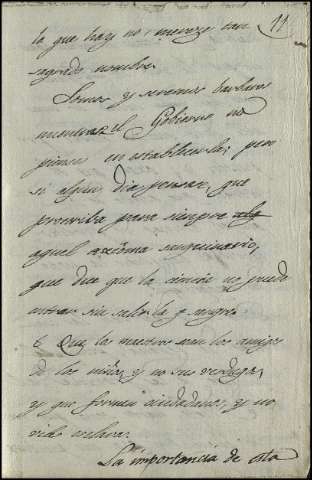 11
la que hay no merece tan
sagrado nombre.
Somos y seremos barbaros
mientras el Gobierno no
piense en establecerla; pero
si algun dia pensare, que
proscriba para siempre
aquel axioma sanguinario,
que dice que la ciencia no puede
entrar sin salir la sangre
Que los maestros sean los amigos
de los niños, y no sus verdugos,
y que formen ciudadanos, y no
viles esclavos.
La importancia de esta